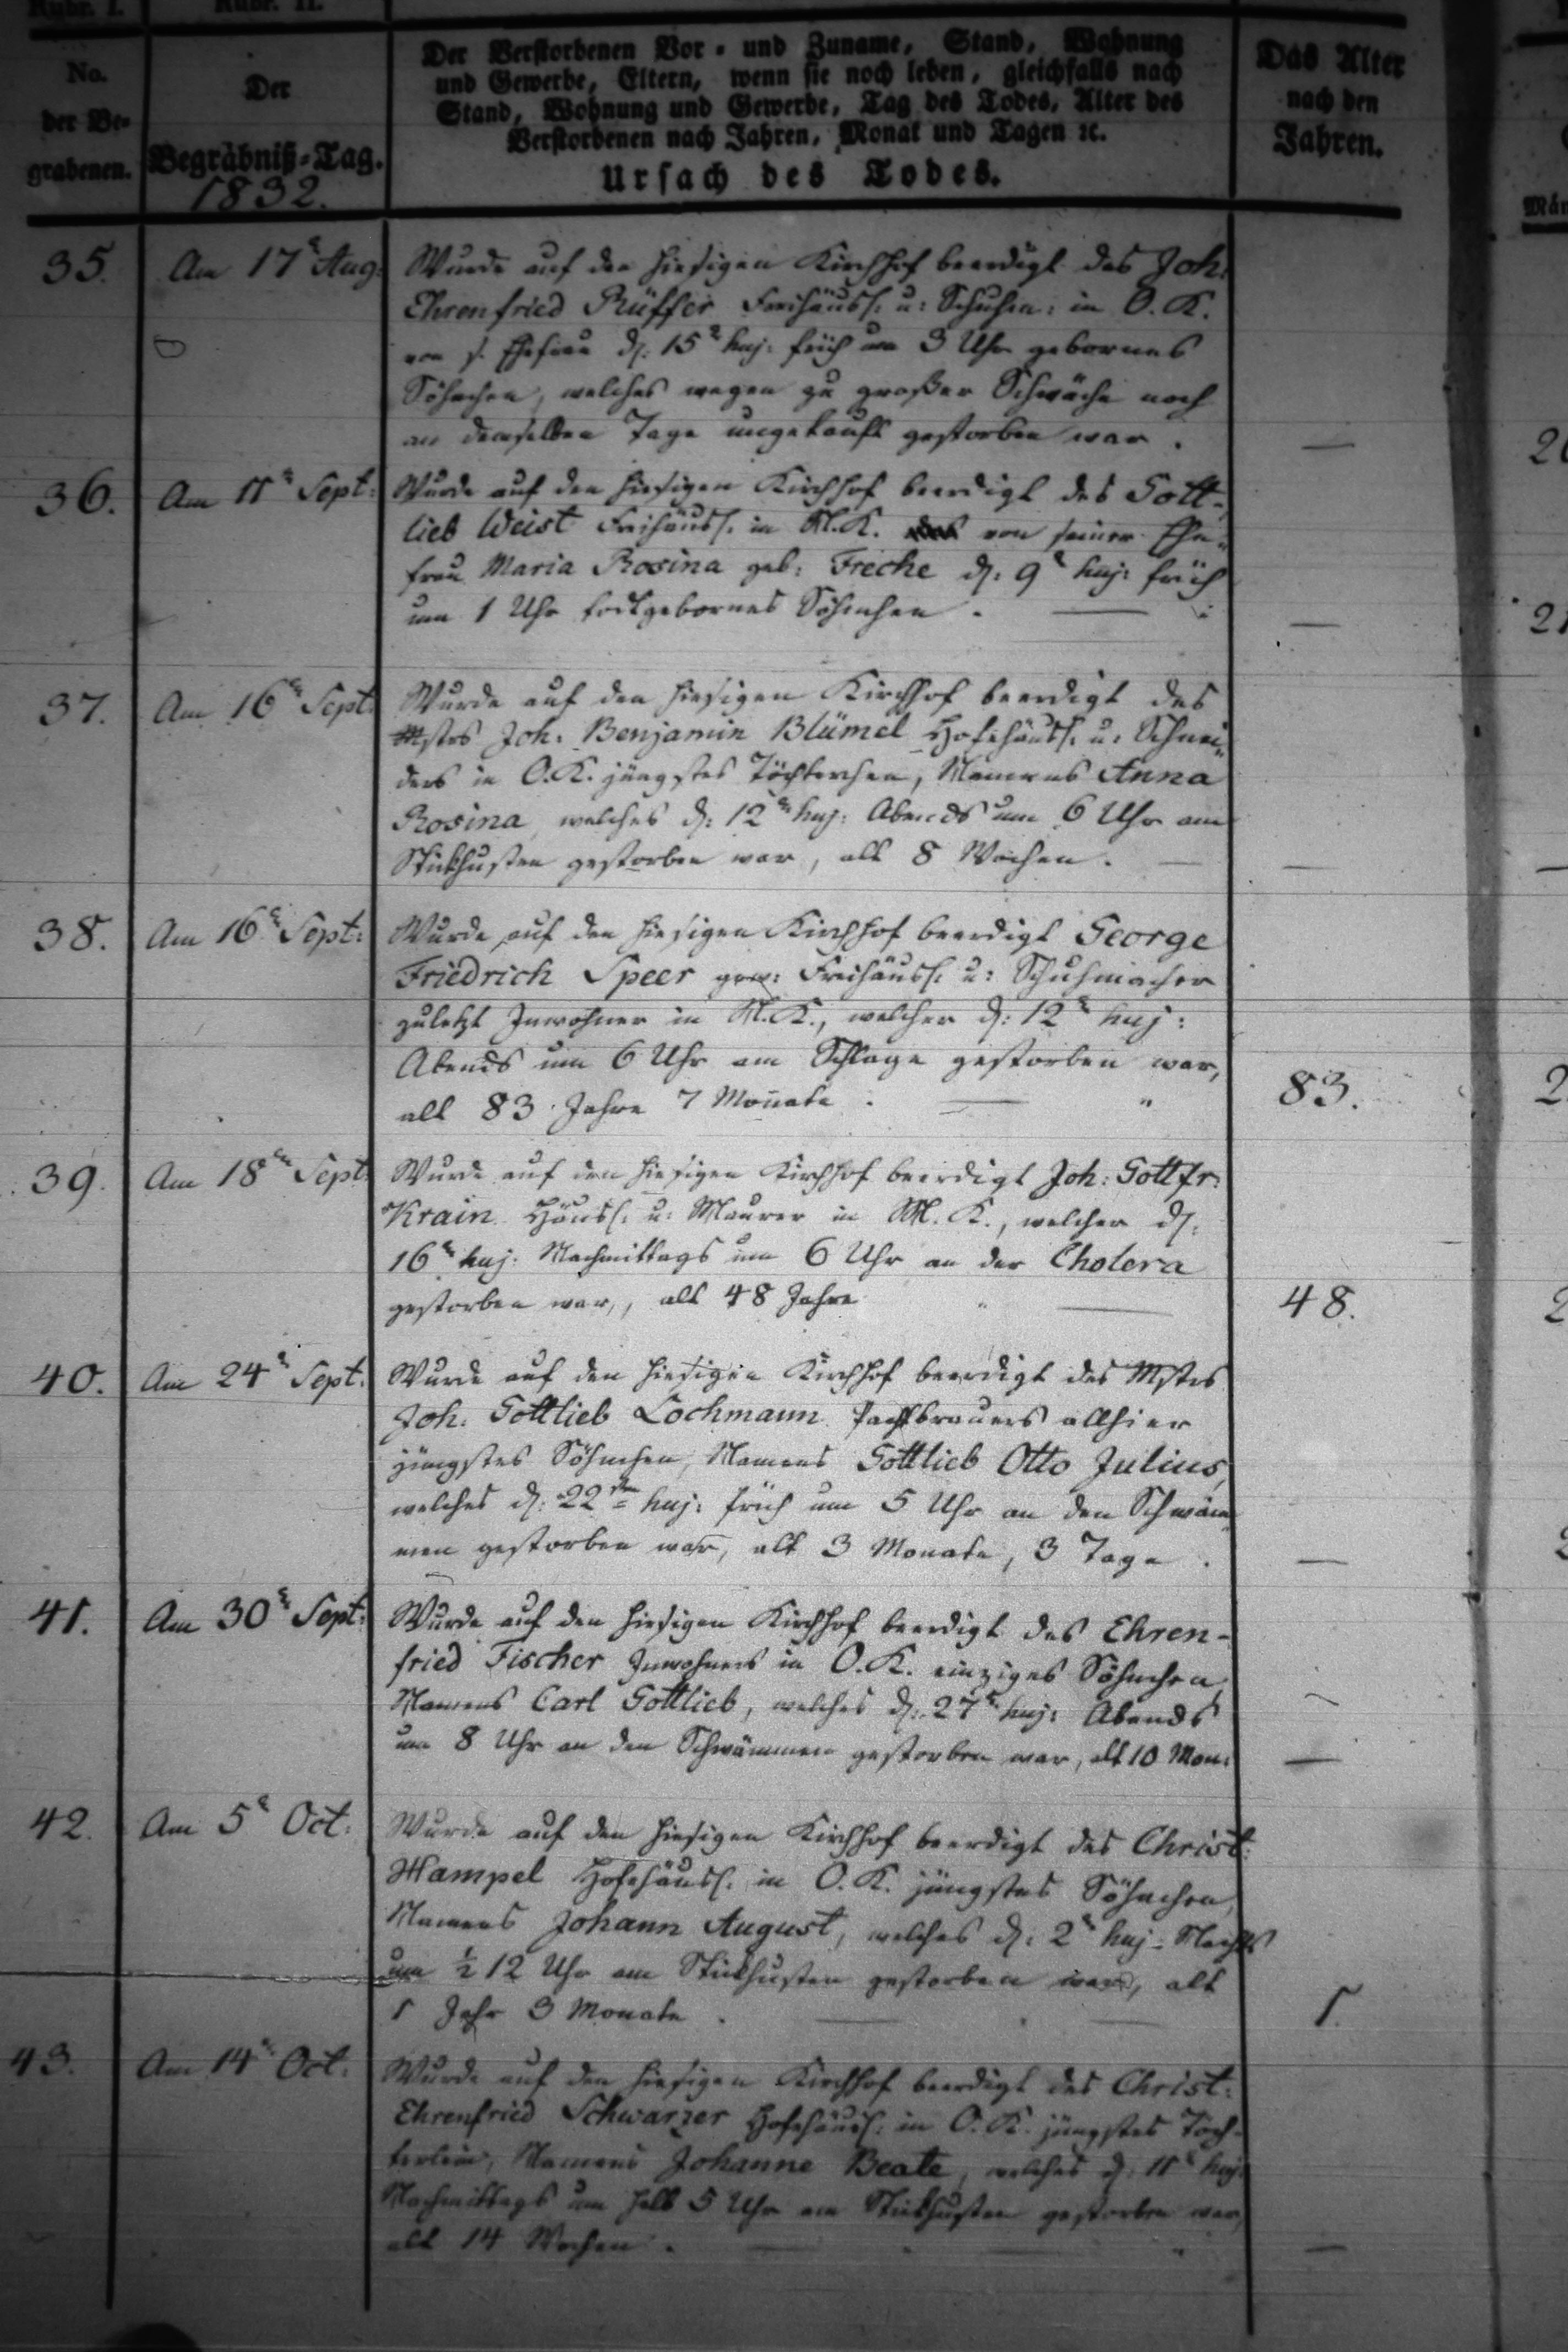 Rubr. I. Rubr. II.
No. der Begrabenen.
Der Begräbniß-Tag. 1832.
Der Verstorbenen Vor- und Zuname, Stand, Wohnung
und Gewerbe, Eltern, wenn sie noch leben, gleichfalls nach
Stand, Wohnung und Gewerbe, Tag des Todes, Alter des
Verstorbenen nach Jahren, Monat und Tagen ꝛc.
Ursach des Todes.
Das Alter
nach den
Jahren.
35. Am 17ten Aug: Wurde auf den hiesigen Kirchhof beerdigt des Joh:
Ehrenfried Rüffer Freihäusl: u: Schuhm: in O. K.
von s. Ehefrau d: 15ten huj: früh um 3 Uhr gebornes
Söhnchen, welches wegen zu großer Schwäche noch
an demselben Tage ungetauft gestorben war. —
36. Am 11ten Sept: Wurde auf den hiesigen Kirchhof beerdigt des Gott-
lieb Weist Freihäusl: in M. K. von seiner Ehe-
frau Maria Rosina geb: Freche d: 9ten huj: früh
um 1 Uhr todtgebornes Söhnchen. —
37. Am 16ten Sept: Wurde auf den hiesigen Kirchhof beerdigt des
Mstrs Joh: Benjamin Blümel Hofehäusl: u: Schnei-
ders in O. K. jüngstes Töchterchen, Namens Anna
Rosina, welches d: 12ten huj: Abends um 6 Uhr am
Stickhusten gestorben war, alt 8 Wochen. —
38. Am 16ten Sept: Wurde auf den hiesigen Kirchhof beerdigt George
Friedrich Speer gew: Freihäusl: u: Schuhmacher
zuletzt Inwohner in M. K., welcher d: 12ten huj:
Abends um 6 Uhr am Schlage gestorben war,
alt 83 Jahre 7 Monate. — 83.
39. Am 18ten Sept: Wurde auf den hiesigen Kirchhof beerdigt Joh: Gottfr:
Krain Häusl: u: Maurer in M. K., welcher d:
16ten huj: Nachmittags um 6 Uhr an der Cholera
gestorben war, alt 48 Jahre — 48.
40. Am 24ten Sept: Wurde auf den hiesigen Kirchhof beerdigt des Mstrs
Joh: Gottlieb Lochmann Pachtbrauers allhier
jüngstes Söhnchen, Namens Gottlieb Otto Julius,
welches d: 22sten huj: früh um 5 Uhr an den Schwäm-
men gestorben war, alt 3 Monate, 3 Tage. —
41. Am 30ten Sept: Wurde auf den hiesigen Kirchhof beerdigt des Ehren-
fried Fischer Inwohners in O. K. einziges Söhnchen,
Namens Carl Gottlieb, welches d: 27ten huj: Abends
um 8 Uhr an den Schwämmen gestorben war, alt 10 Mon: —
42. Am 5ten Oct: Wurde auf den hiesigen Kirchhof beerdigt des Christ:
Hampel Hofehäusl: in O. K. jüngstes Söhnchen,
Namens Johann August, welches d: 2ten huj: Nachts
um ½ 12 Uhr am Stickhusten gestorben war, alt
1 Jahr 3 Monate. — 1.
43. Am 14ten Oct: Wurde auf den hiesigen Kirchhof beerdigt des Christ:
Ehrenfried Schwarzer Hofehäusl: in O. K. jüngstes Töch-
terlein, Namens Johanne Beate, welches d: 11ten huj:
Nachmittags um halb 5 Uhr am Stickhusten gestorben war,
alt 14 Wochen. —